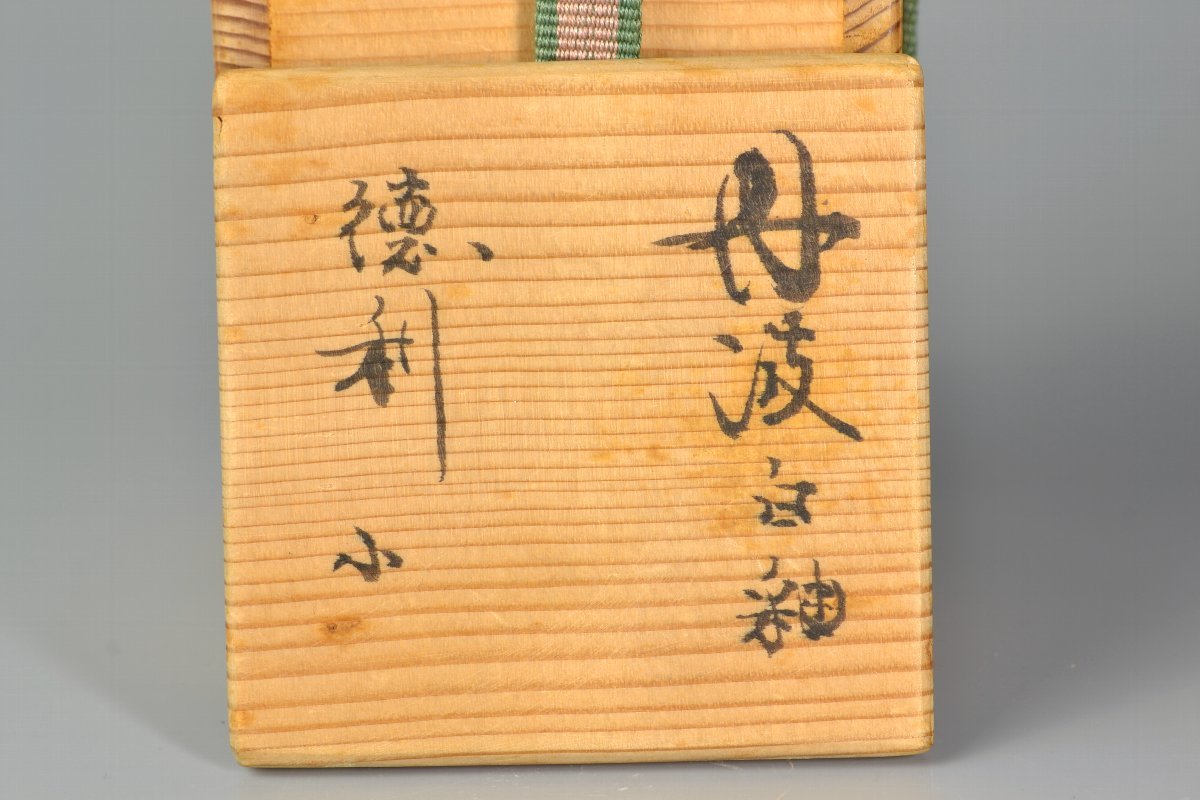 丹波白釉
徳利 小